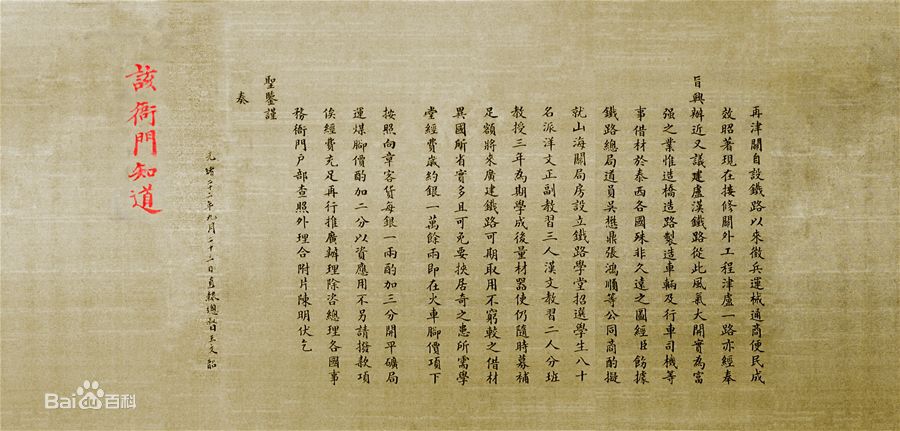 再津關自設鐵路以來徵兵運械通商便民成
效昭著現在接修關外工程津盧一路亦經奉
旨興辦近又議建盧漢鐵路從此風氣大開實為富
强之業惟造橋造路製造車輛及行車司機等
事借材於泰西各國殊非久遠之圖經臣飭據
鐵路總局道員吳懋鼎張鴻順等公同商酌擬
就山海關局房設立鐵路學堂招選學生八十
名派洋文正副教習三人漢文教習二人分班
教授三年為期學成後量材器使仍隨時募補
足額將來廣建鐵路可期取用不窮較之借材
異國所省實多且可免要挾居奇之患所需學
堂經費歲約銀一萬餘兩即在火車腳價項下
按照向章客貨每銀一兩酌加三分開平礦局
運煤腳價酌加二分以資應用不另請撥款項
俟經費充足再行推廣辦理除咨總理各國事
務衙門戶部查照外理合附片陳明伏乞
聖鑒謹
奏
光緒二十二年九月二十三日直隸總督王文韶
該衙門知道
Bai度百科